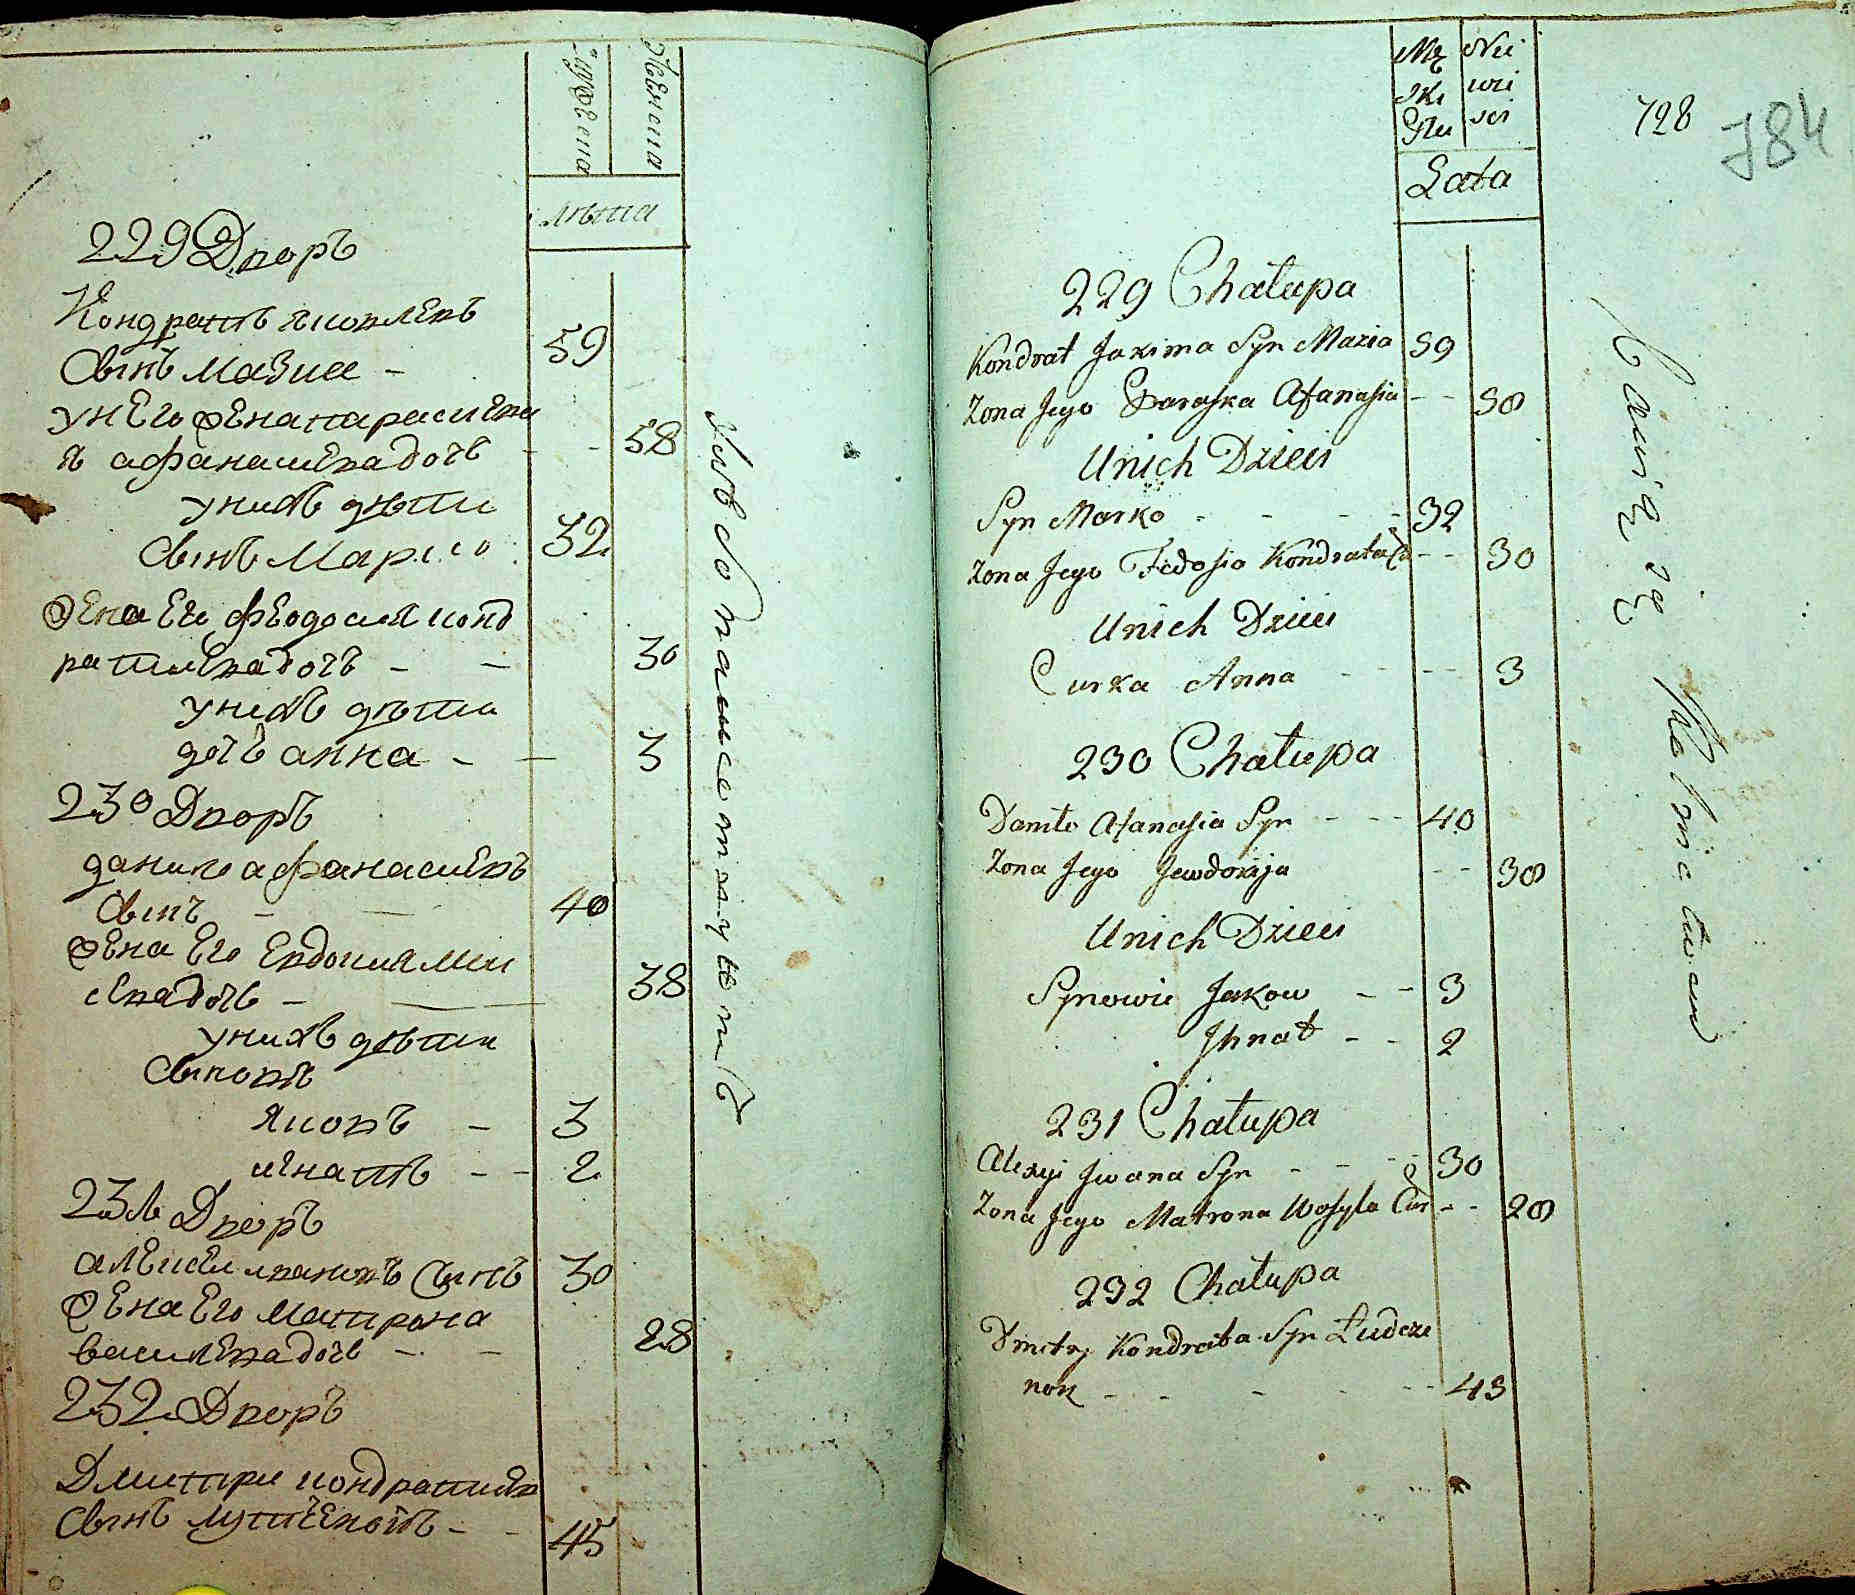 Мужеска
Женска
лѣта
229 Дворъ
Кондратъ яковлевъ
Сынъ Мазка - 59
у него жена параскева
я афанасиева дочь - - 58
у нихъ дѣти
Сынъ Марко 32
жена Его феодосия конд
ратиева дочь - - 30
у нихъ дѣти
дочь анна - - 3
230 Дворъ
данило афанасиевъ
Сынъ - - 40
жена Его Евдокия
дочь - 38
у нихъ дѣти
Сыновя
яковъ - 3
игнатъ - - 2
231 Дворъ
алексеи ивановъ Сынъ 30
жена Его Матрона
василева дочь - - 28
232 Дворъ
Дмитри кондратиевъ
Сынъ - - 45
Mę Nie
ski wie
sci
Lata
728
784
229 Chałupa
Kondrat Jakima Syn Mazka 59
Zona Jego Paraska Afanasia - - 58
Unich Dzieci
Syn Marko - - - - 32
Zona Jego Fedosia Kondrata Co - - 30
Unich Dzieci
Curka Anna - - - 3
230 Chałupa
Daniło Afanasia Syn - - - 40
Zona Jego Jewdokija - - 38
Unich Dzieci
Synowie Jakow - - 3
Ihnat - - 2
231 Chałupa
Alexyi Iwana Syn - - - - 30
Zona Jego Matrona Wasyla Cór - - 28
232 Chałupa
Dmitry Kondrata Syn Łudcze
nok - - - - - - 45